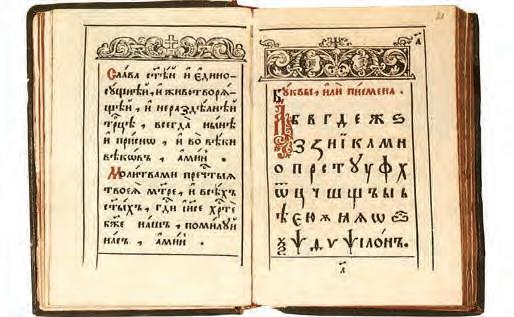 Сла́ва ст҃ѣ́й и҆ є҆дино-
сꙋ́щнѣй, и҆ животворѧ́-
щей, и҆ нераздѣ́лнѣй
трⷪ҇цѣ, всегда̀ ны́нѣ
и҆ при́снѡ, и҆ во вѣ́ки
вѣкѡ́въ, а҆ми́нь.
Моли́твами пречⷭ҇тыѧ
твоеѧ̀ мт҃ре, и҆ всѣ́хъ
ст҃ы́хъ, гдⷭ҇и і҆и҃се хрⷭ҇тѐ
бж҃е на́шъ, поми́лꙋй
на́съ, а҆ми́нь.
Бꙋ́квы, и҆лѝ писмена̀.
А Б В Г Д Е Ж Ѕ
З Ꙁ И Ї К Л М Н
О П Р С Т Ꙋ У Ф Х
Ѿ Ц Ч Ш Щ Ъ Ы Ь
Ѣ Є Ю Ѫ Ѧ Ѡ
Ѯ Ѱ